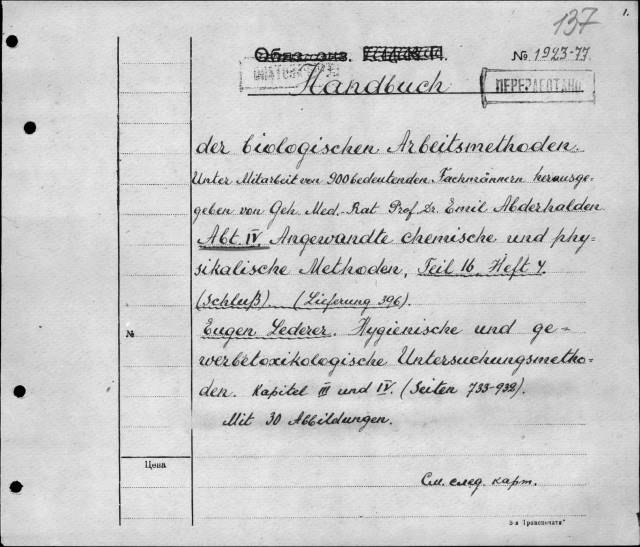 137
1.
Обяз. экз.
№ 1923-77
ПЕРЕРАБОТАНО
Handbuch
der biologischen Arbeitsmethoden.
Unter Mitarbeit von 900 bedeutenden Fachmännern herausge-
geben von Geh. Med.-Rat Prof. Dr. Emil Abderhalden
Abt. IV. Angewandte chemische und phy-
sikalische Methoden, Teil 16, Heft 7.
(Schluß). (Lieferung 396).
№
Eugen Lederer. Hygienische und ge-
werbetoxikologische Untersuchungsmetho-
den. Kapitel III und IV. (Seiten 733-932).
Mit 30 Abbildungen.
Цена
См. след. карт.
3-я „Транспечати"